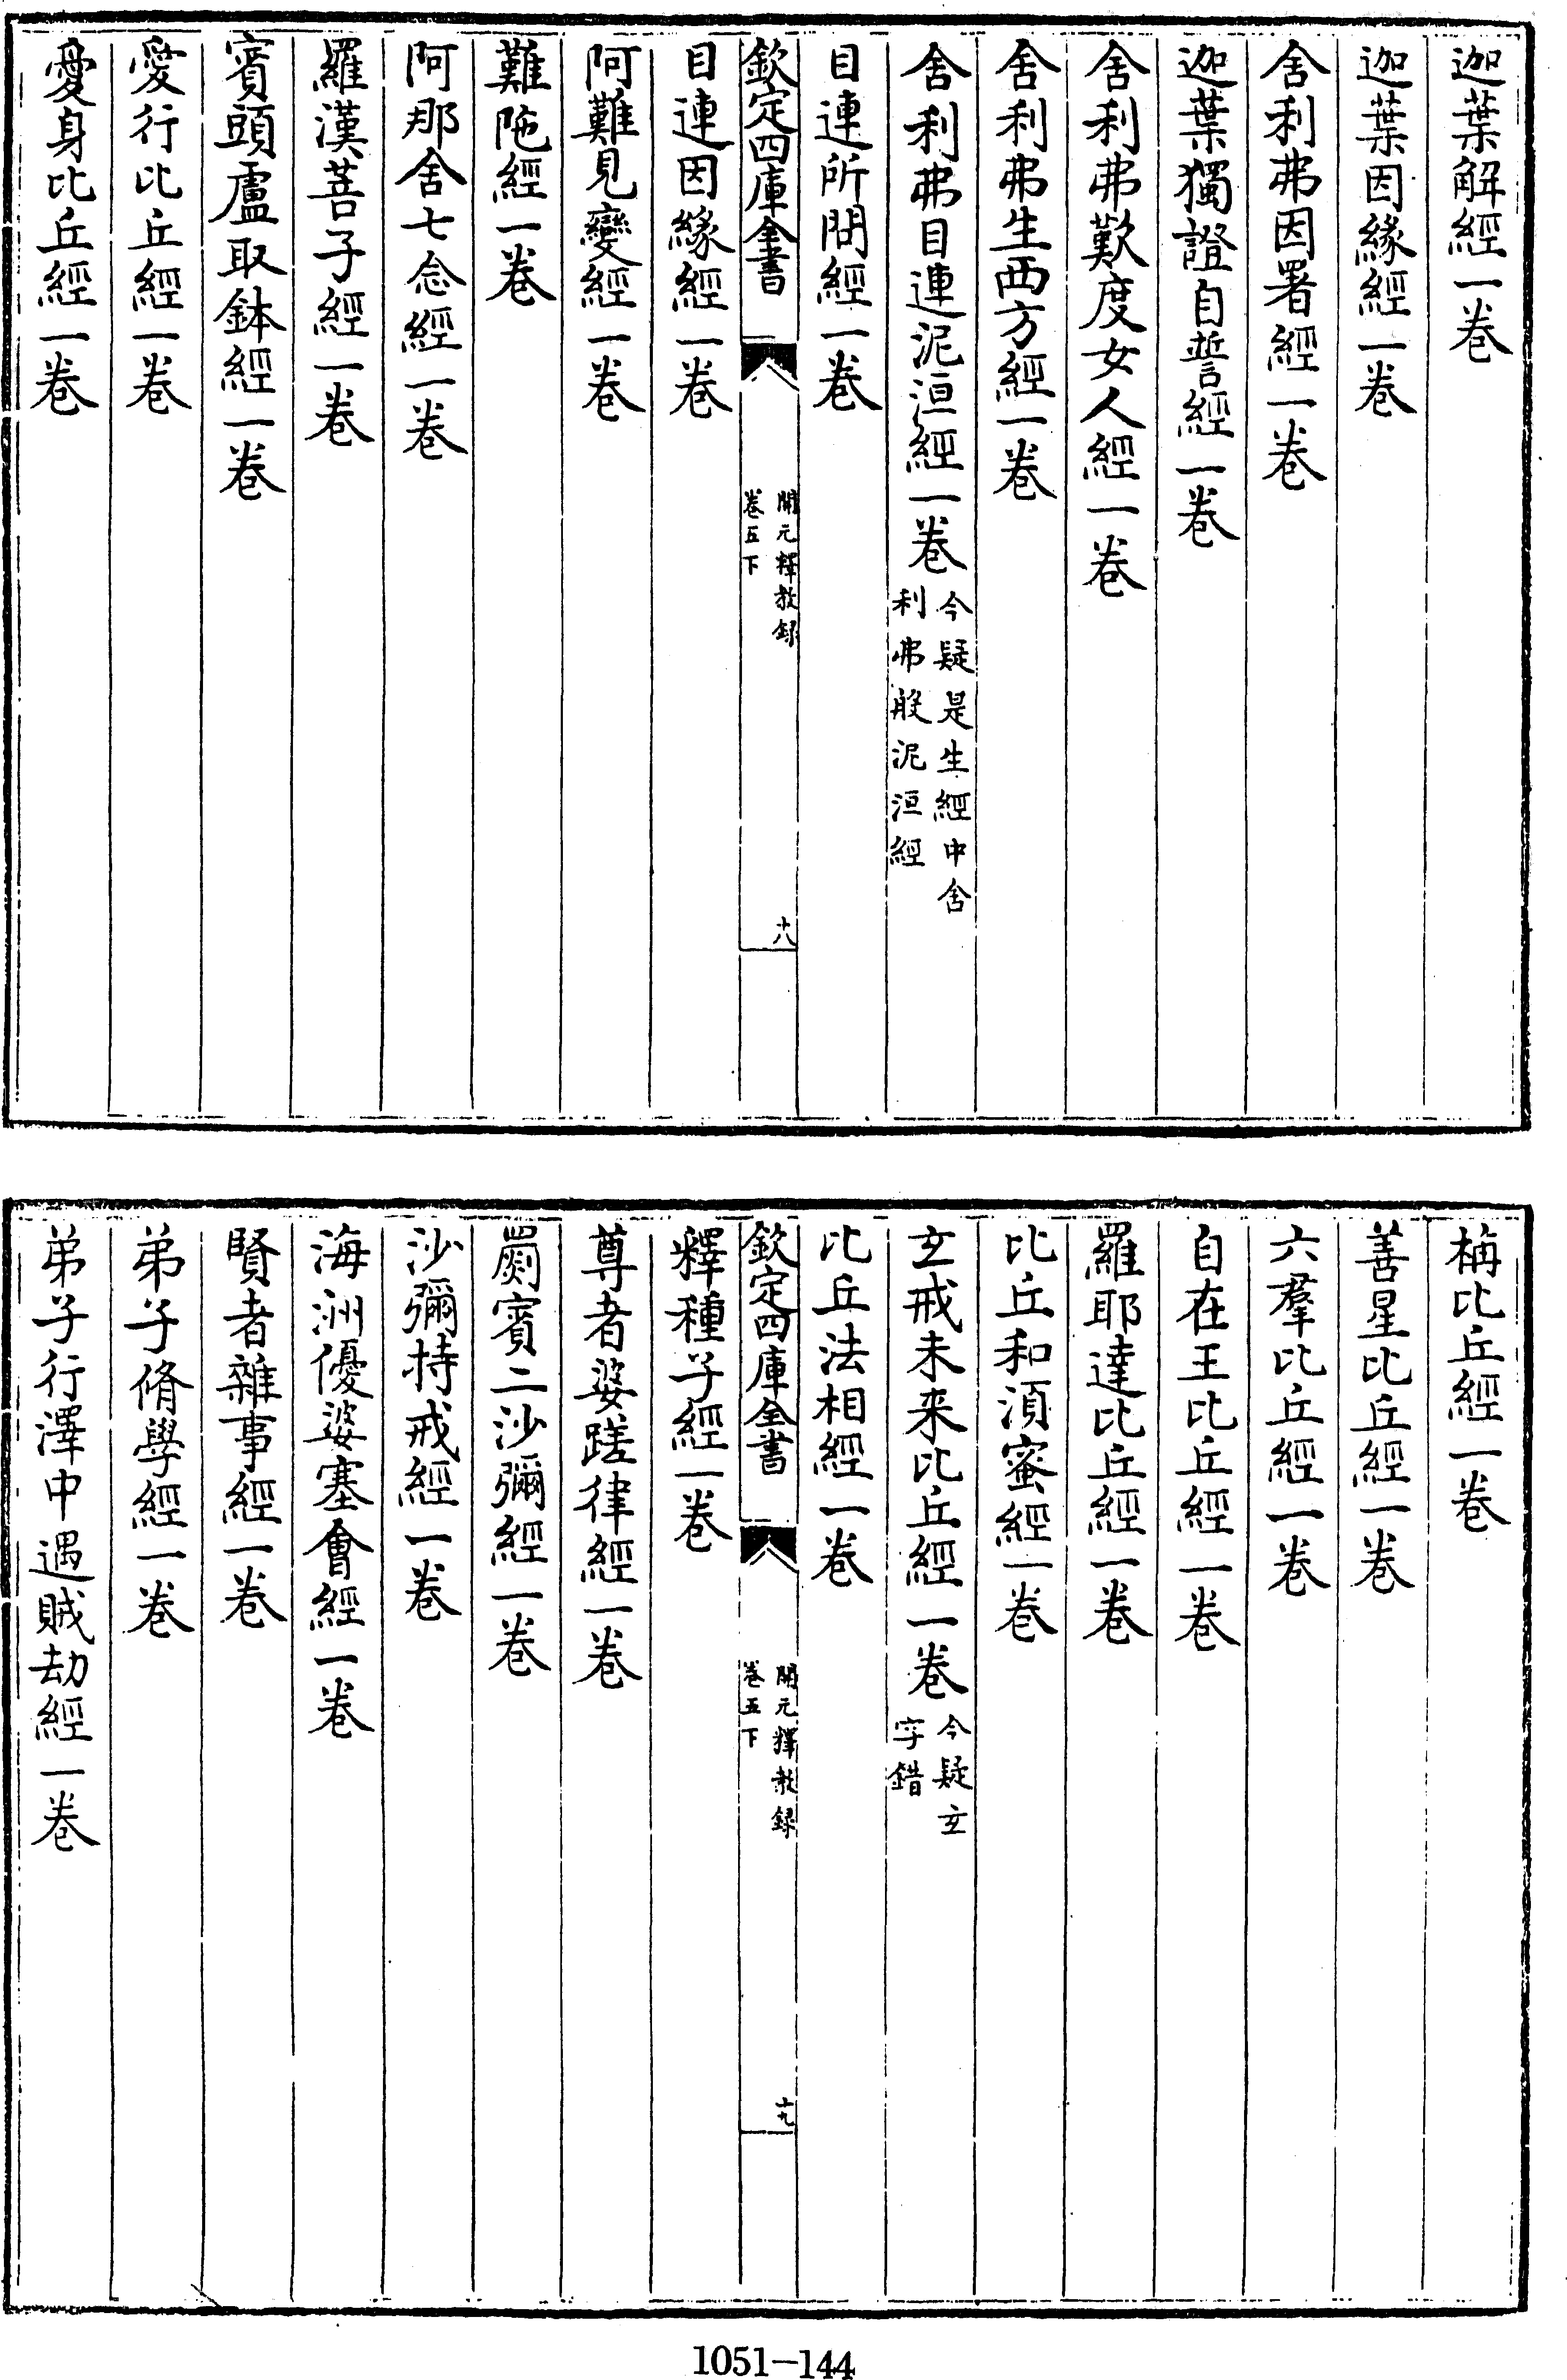 迦葉解經一卷
迦葉因緣經一卷
舍利弗因署經一卷
迦葉獨證自誓經一卷
舍利弗歎度女人經一卷
舍利弗生西方經一卷
舍利弗目連泥洹經一卷今疑是生經中舍利弗般泥洹經
目連所問經一卷
欽定四庫全書
開元釋教録
卷五下
十八
目連因緣經一卷
阿難見變經一卷
難陁經一卷
阿那舍七念經一卷
羅漢菩子經一卷
賓頭盧取鉢經一卷
愛行比丘經一卷
愛身比丘經一卷
栴比丘經一卷
善星比丘經一卷
六羣比丘經一卷
自在王比丘經一卷
羅耶達比丘經一卷
比丘和須蜜經一卷
玄戒未来比丘經一卷今疑玄字錯
比丘法相經一卷
欽定四庫全書
開元釋教録
卷五下
十九
釋種子經一卷
尊者婆蹉律經一卷
罽賓二沙彌經一卷
沙彌持戒經一卷
海洲優婆塞會經一卷
賢者雜事經一卷
弟子脩學經一卷
弟子行澤中遇賊劫經一卷
1051-144